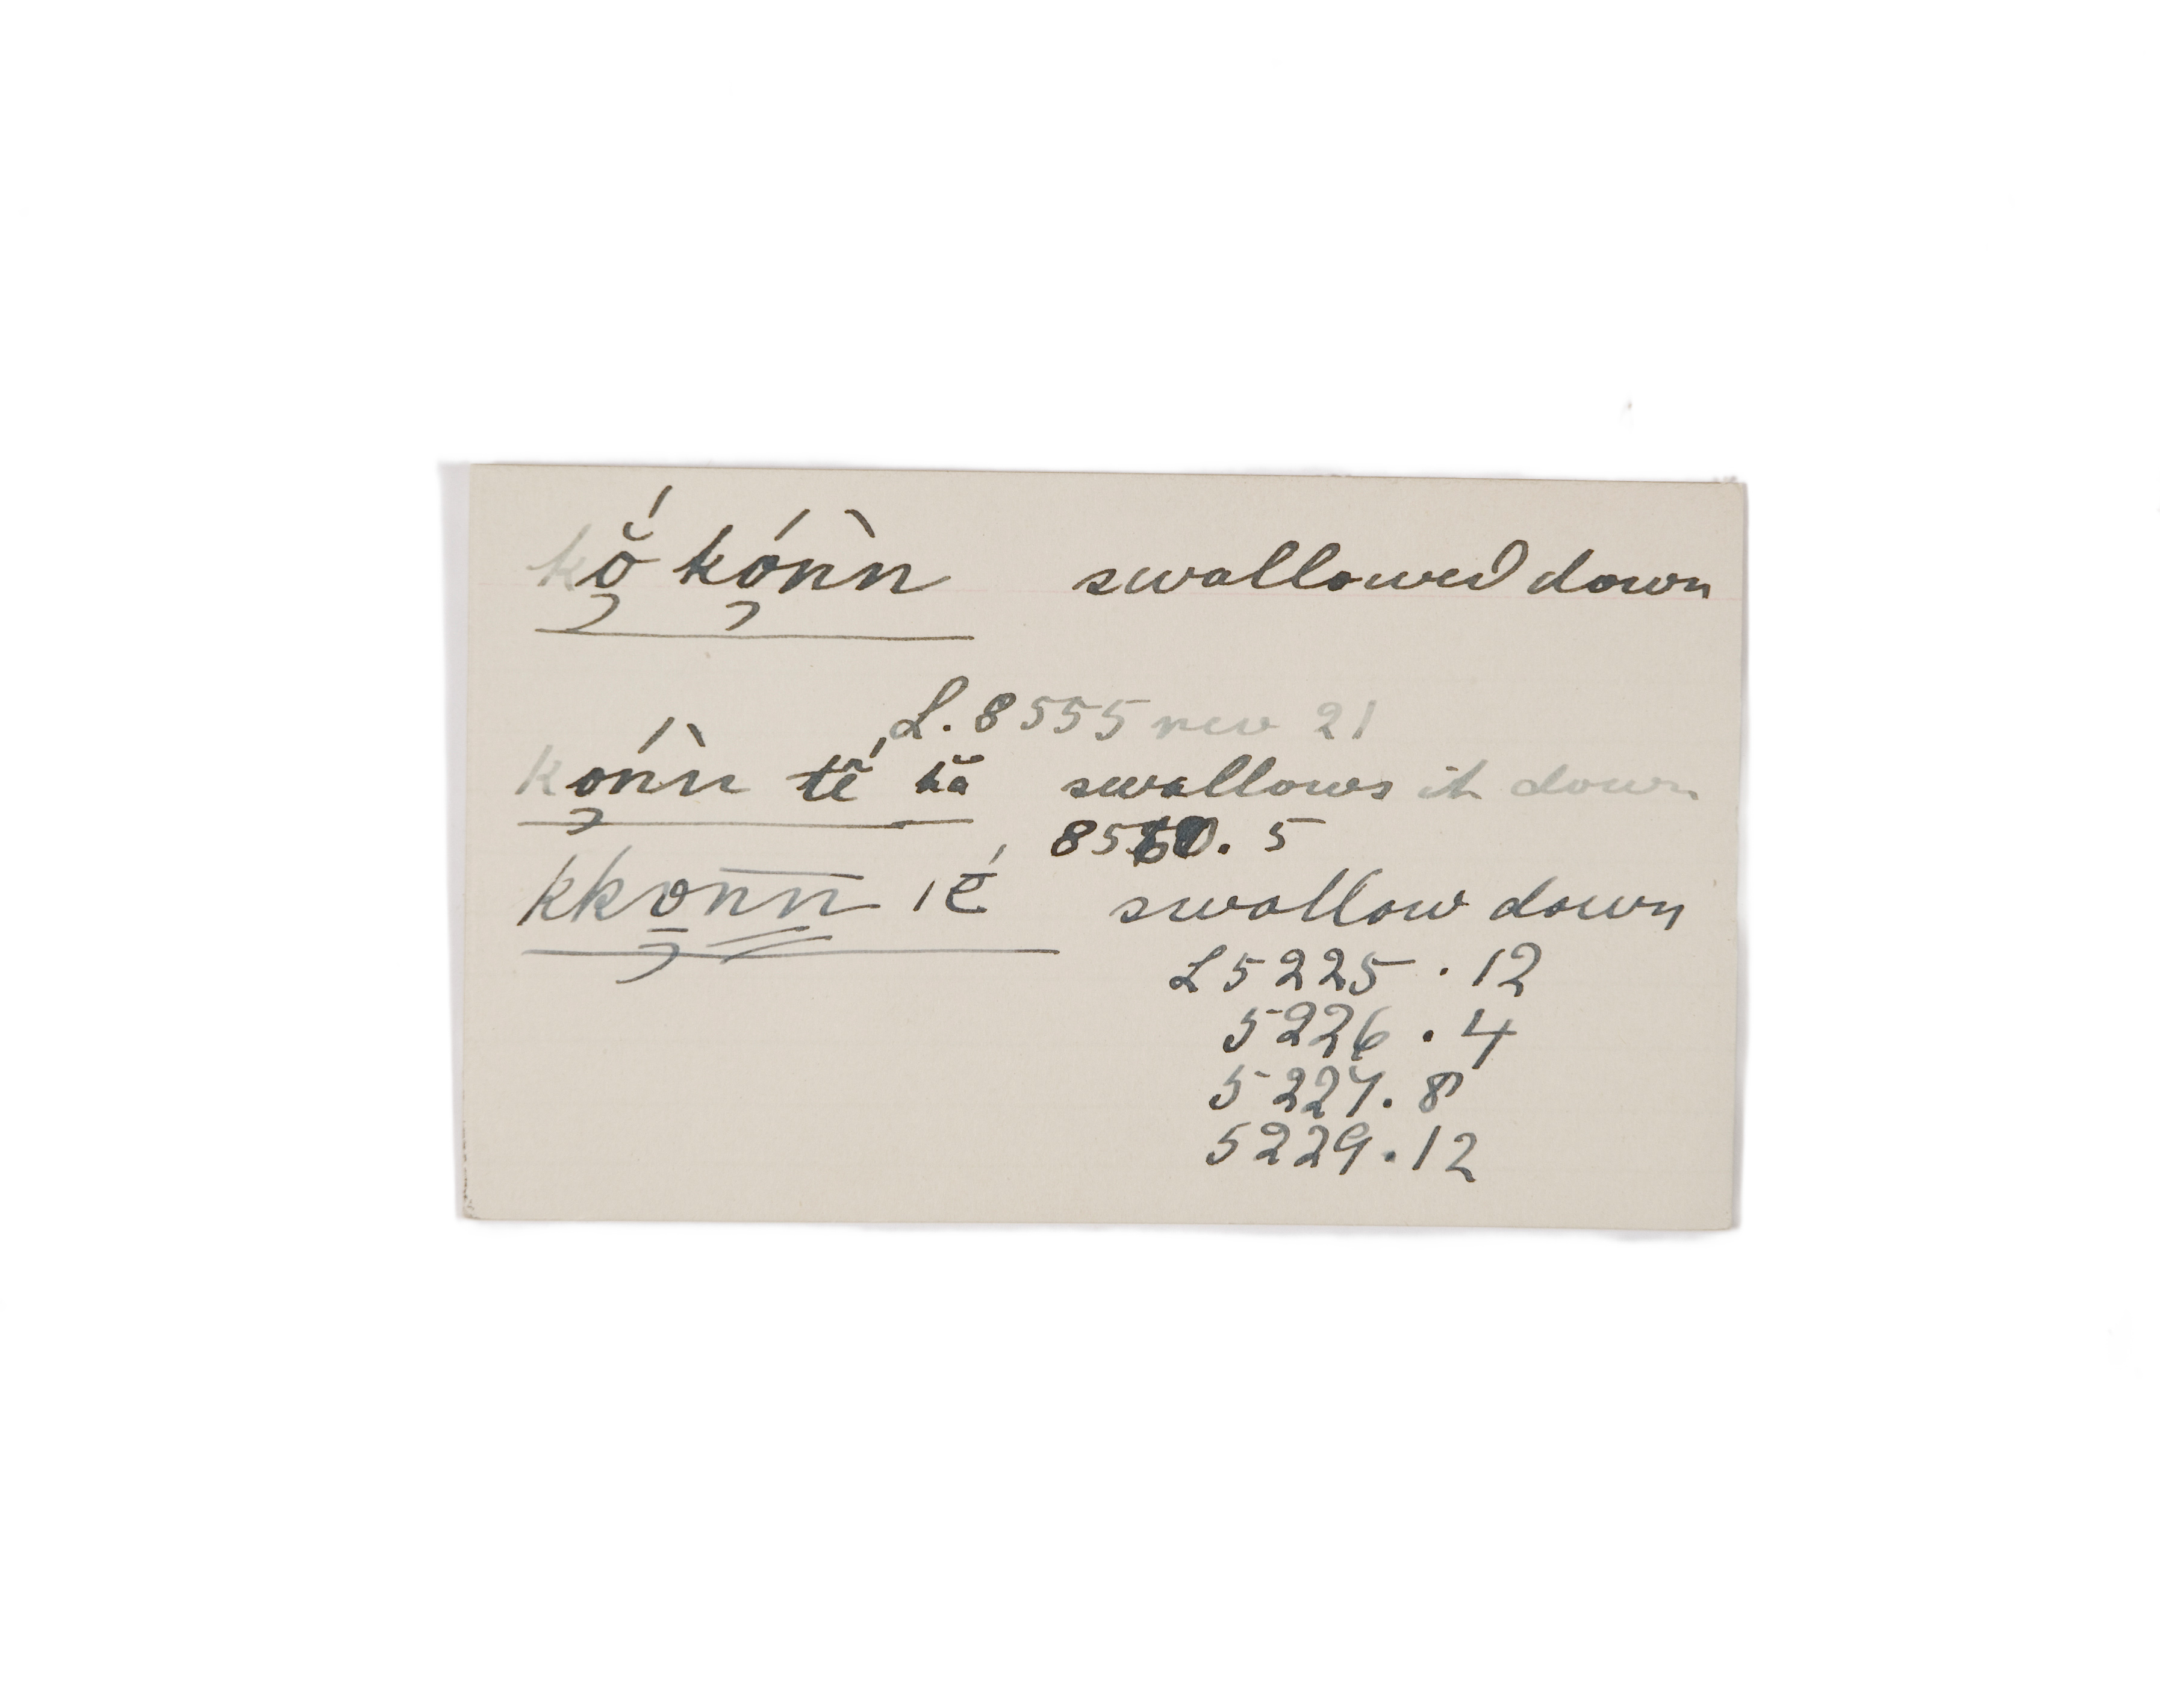 kŏ́ kóǹn swallowed down
L. 8555 rev 21
kóǹn tĕ́ hă swallows it down
8560. 5
kkọn̄n̄ ĭḗ swallow down
L 5225 . 12
5226 . 4
5227. 8
5229. 12